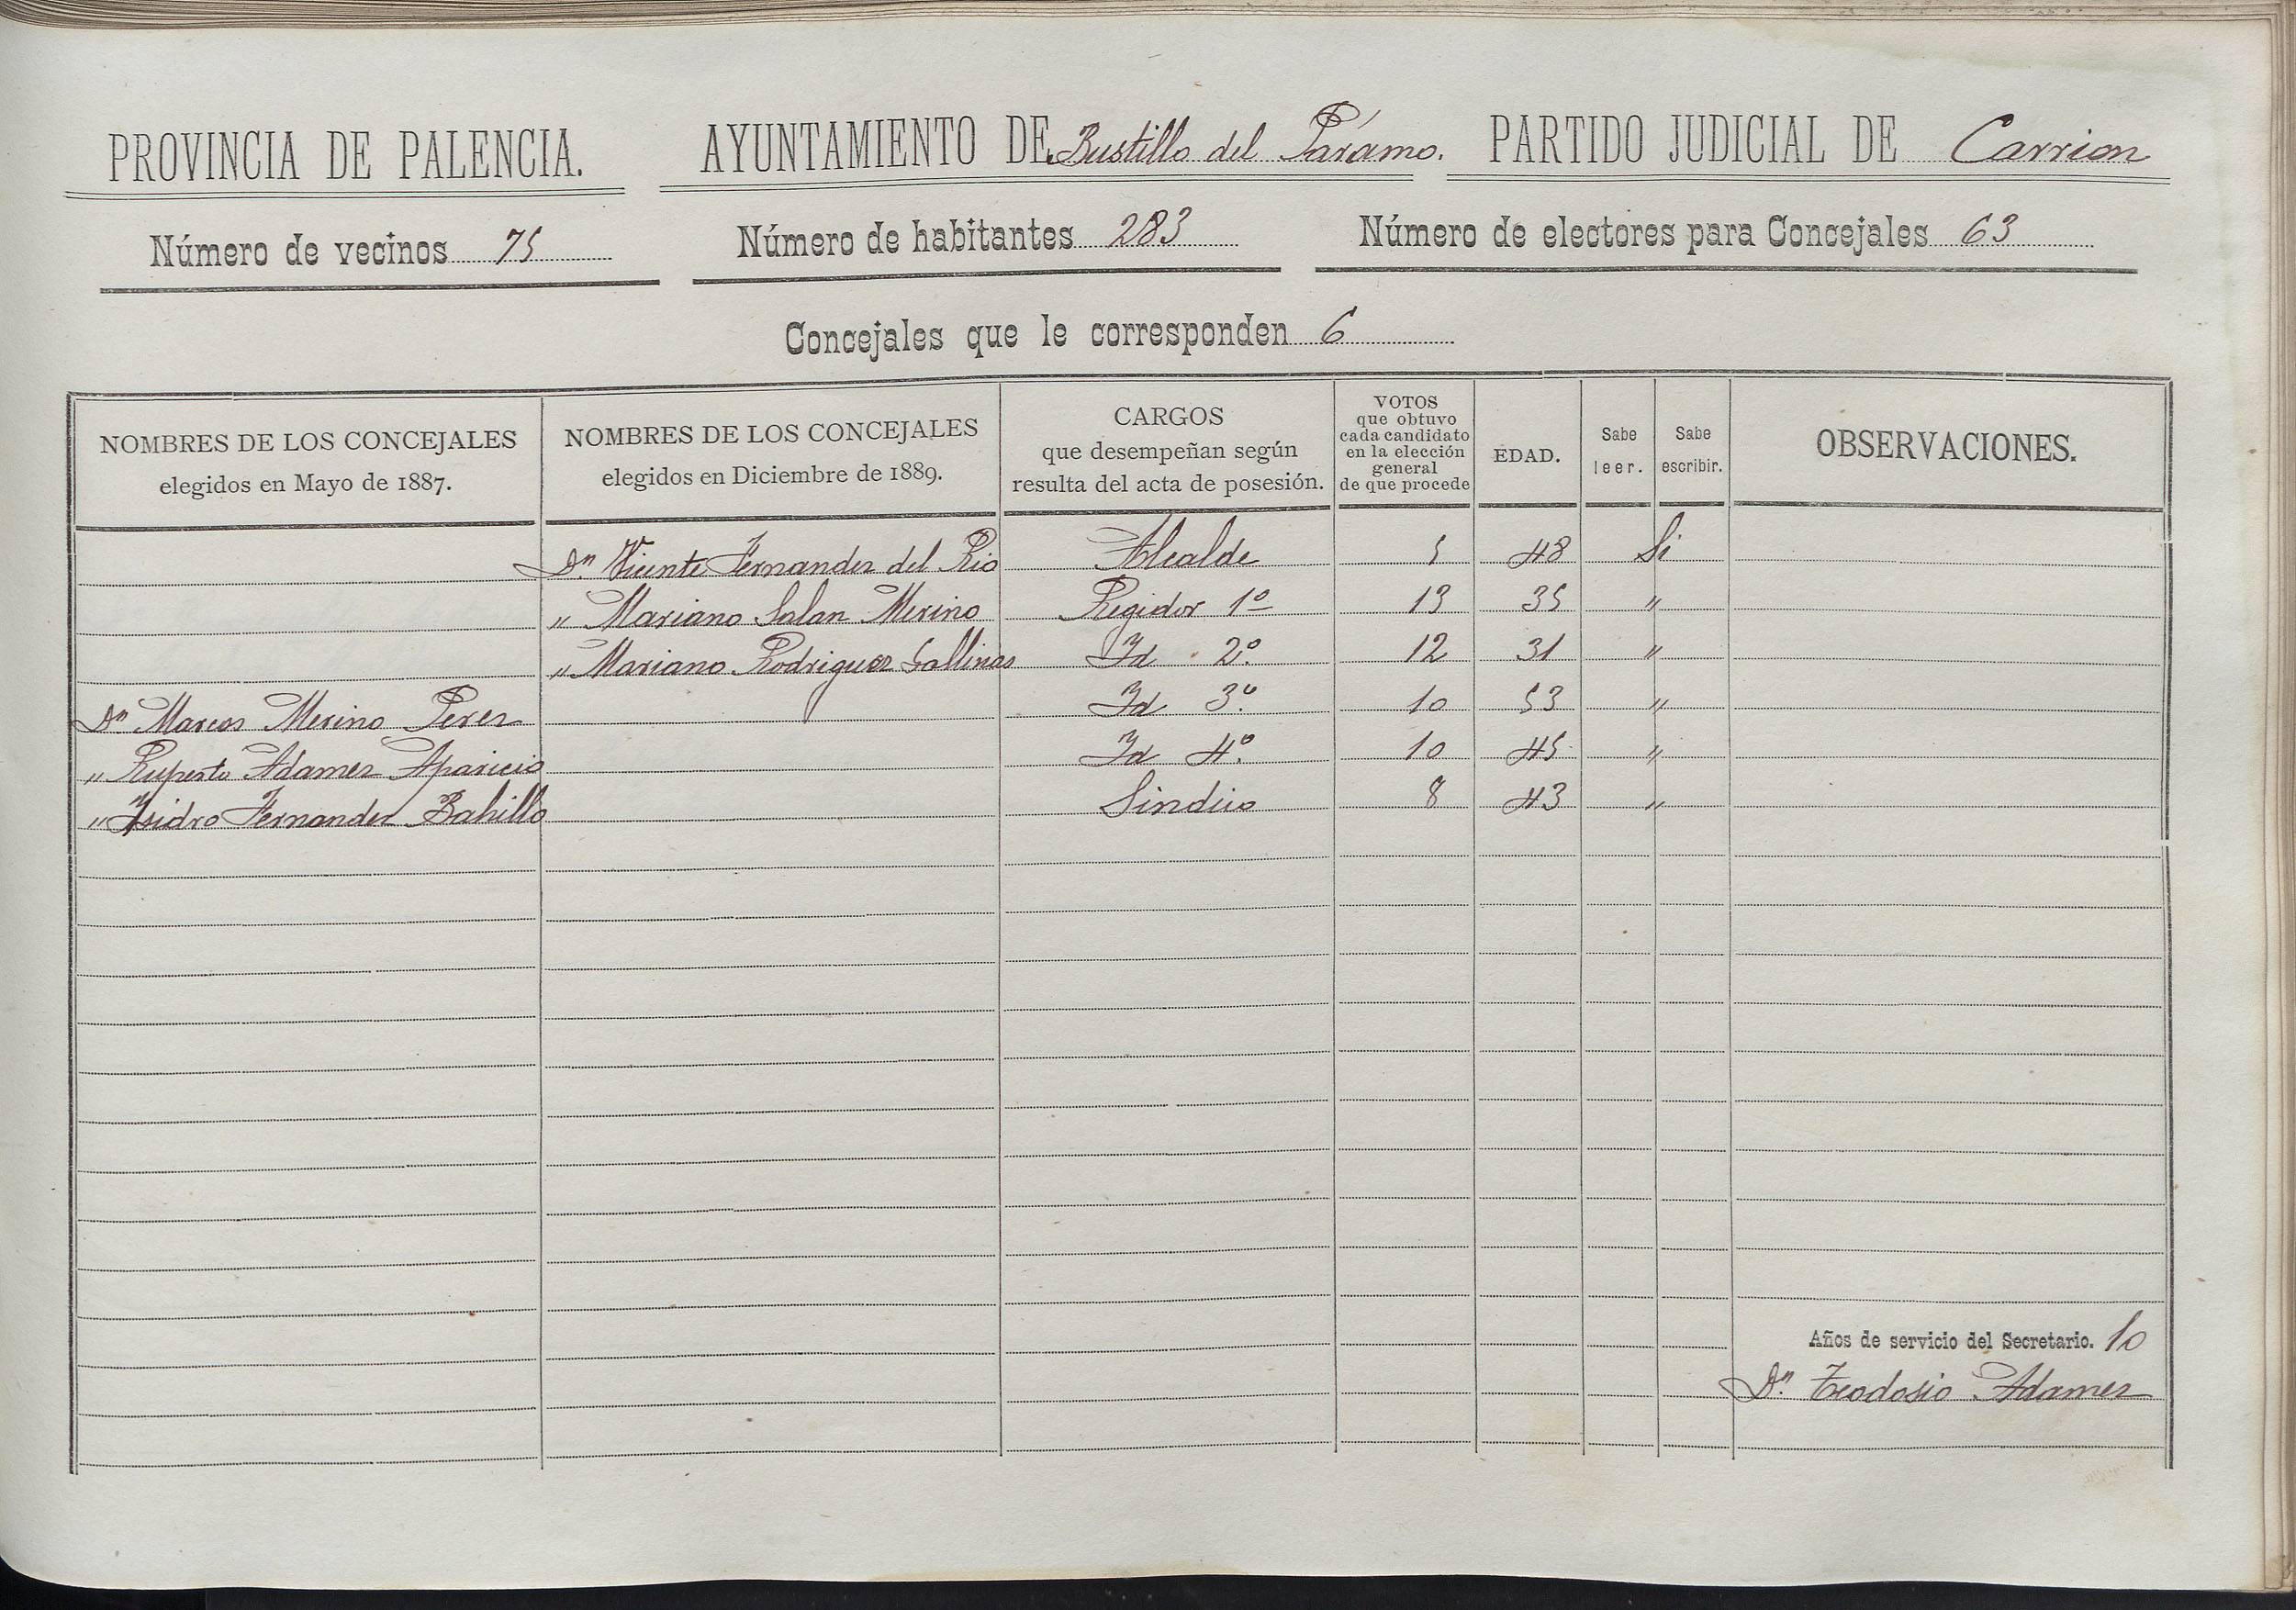 PROVINCIA DE PALENCIA. AYUNTAMIENTO DE Bustillo del Páramo. PARTIDO JUDICIAL DE Carrion
Número de vecinos 75 Número de habitantes 283 Número de electores para Concejales 63
Concejales que le corresponden 6
NOMBRES DE LOS CONCEJALES elegidos en Mayo de 1887. NOMBRES DE LOS CONCEJALES elegidos en Diciembre de 1889. CARGOS que desempeñan según resulta del acta de posesión. VOTOS que obtuvo cada candidato en la elección general de que procede EDAD. Sabe leer. Sabe escribir. OBSERVACIONES.
Dn. Vicente Fernandez del Rio Alcalde 5 48 Si
" Mariano Salan Merino Regidor 1º 13 35 "
" Mariano Rodriguez Gallinas Id 2º. 12 31 "
Dn Marcos Merino Perez Id 3º. 10 53 "
" Ruperto Adamez Aparicio Id 4º. 10 45 "
" Isidro Fernandez Bahillo Sindico 8 43 "
Años de servicio del Secretario. 10
Dn. Teodosio Adamez